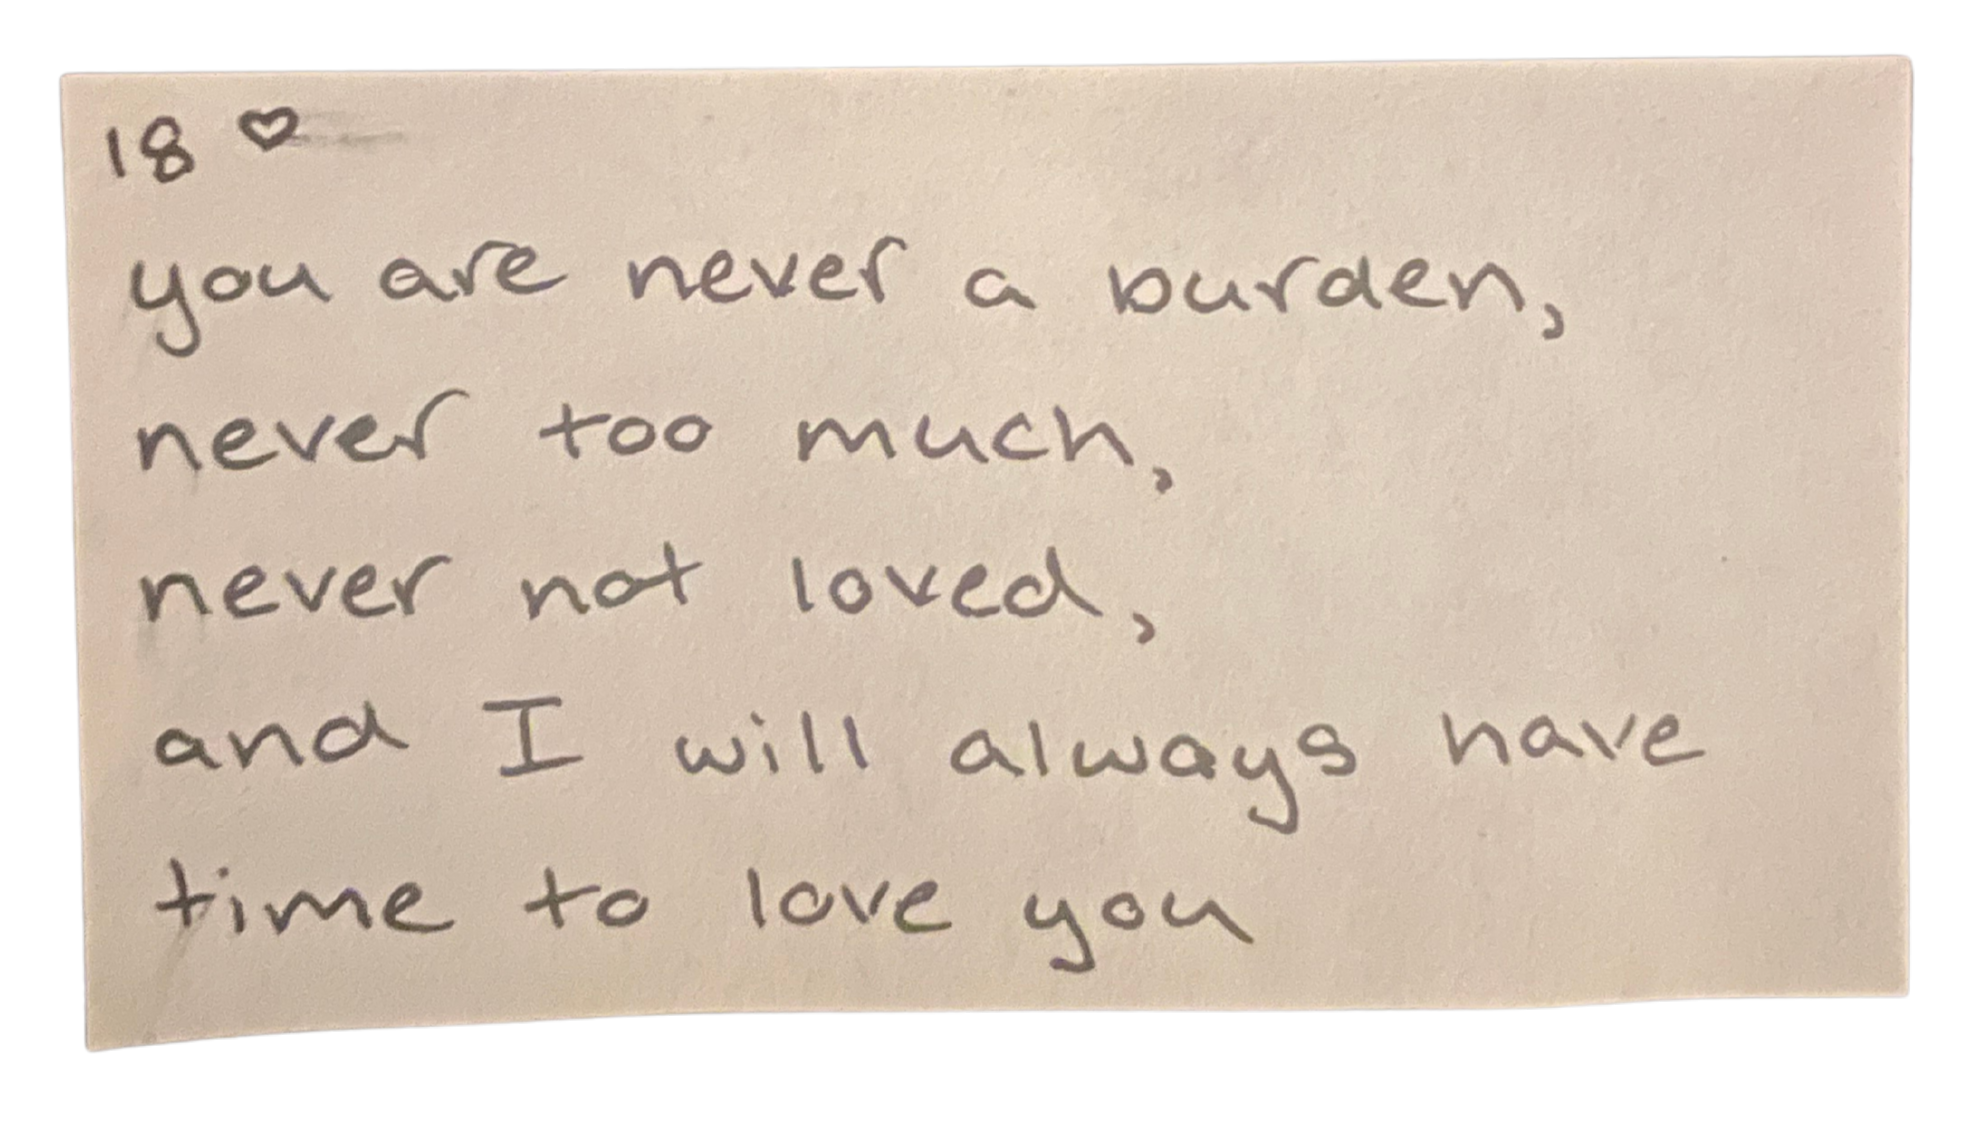 18 ♡
you are never a burden,
never too much,
never not loved,
and I will always have
time to love you